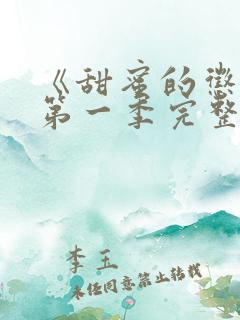 《甜蜜的惩
第一季完整
李玉
未经同意禁止转载